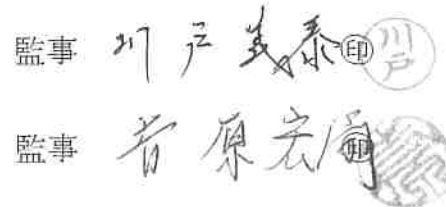 監事 川戸義泰㊞ 川戸
監事 菅原宏 ㊞